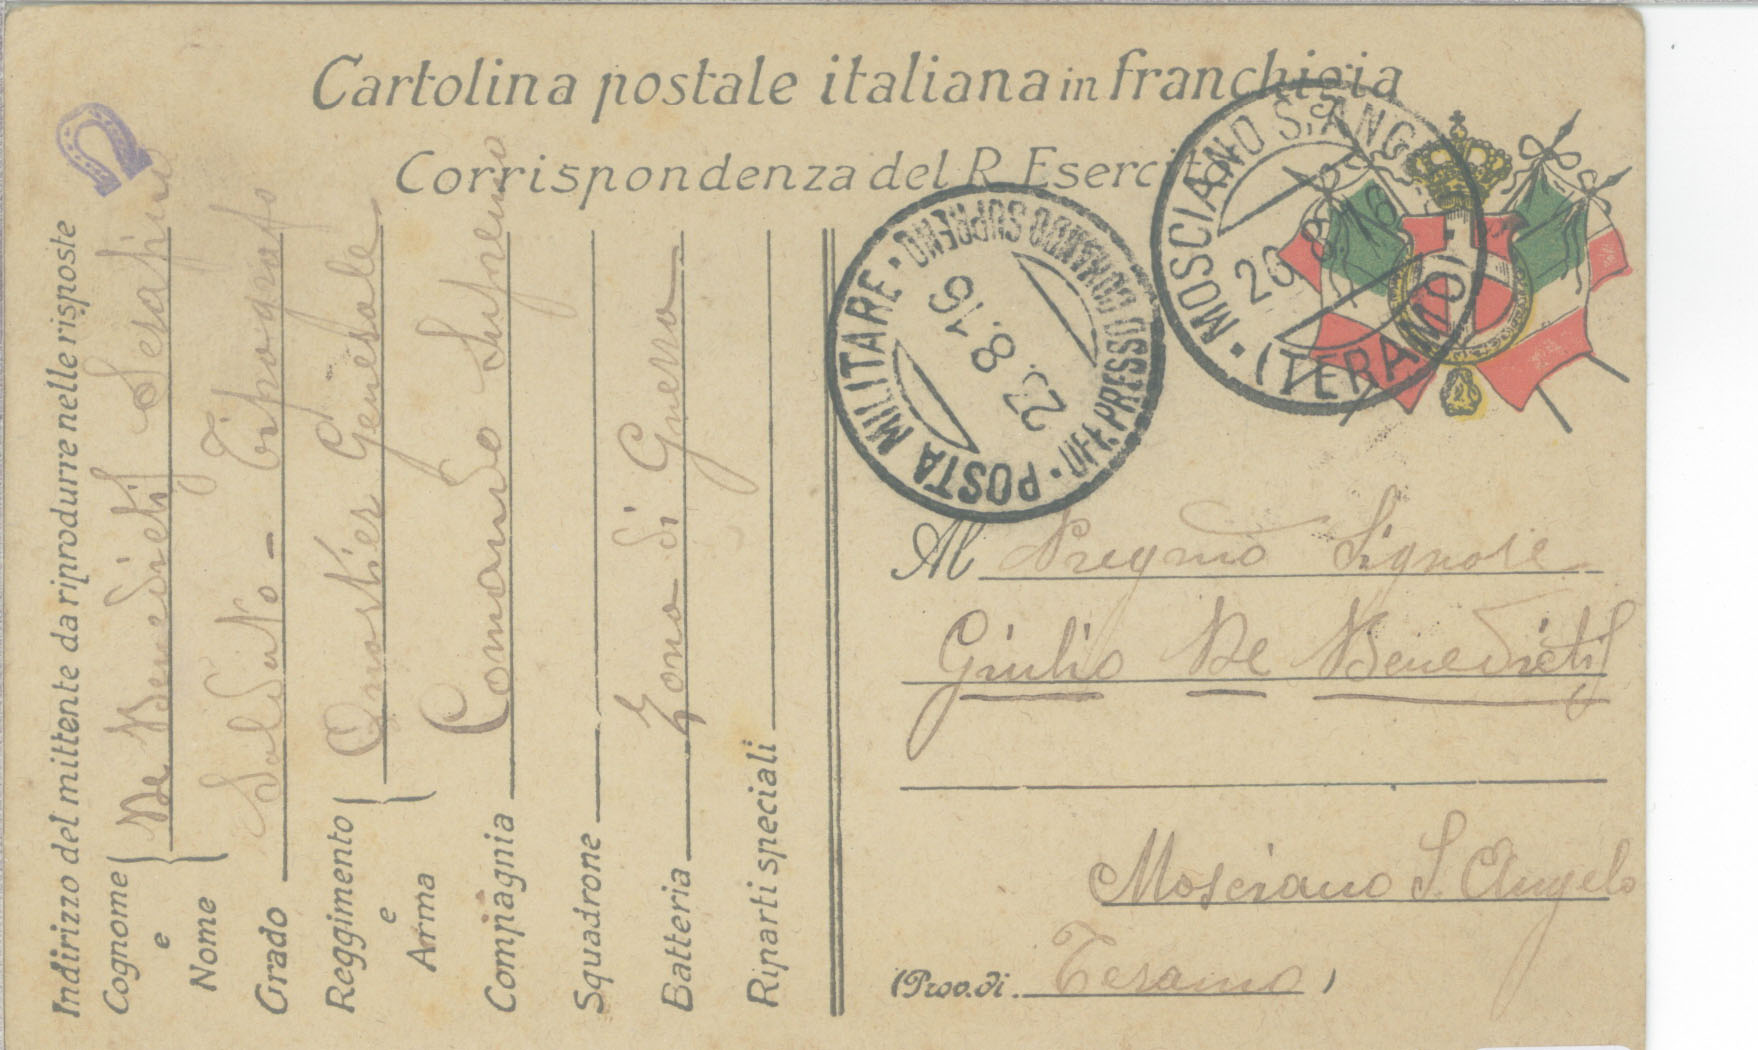 Cartolina postale italiana in franchigia
Corrispondenza del R. Esercito
Indirizzo del mittente da riprodurre nelle risposte
Cognome e Nome De Benedictis Serafino
Grado Soldato - Tipografo
Reggimento e Arma Quartier Generale
Compagnia Comando Supremo
Squadrone
Batteria Zona di Guerra
Riparti speciali
POSTA MILITARE · UFF. PRESSO COMANDO SUPREMO ·
23.8.16
· MOSCIANO S. ANG
26.8.16
(TERAMO)
Al Pregmo Signore
Giulio De Benedictis
Mosciano S. Angelo
(Prov. di Teramo)